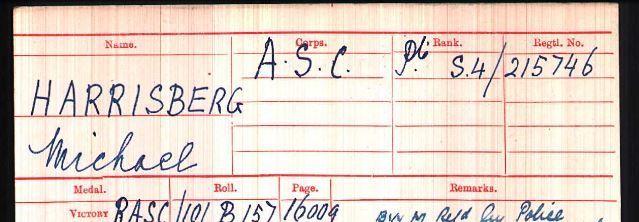 Name. Corps. Rank. Regtl. No.
A.S.C. Pte S.4/215746
HARRISBERG
Michael
Medal. Roll. Page. Remarks.
VICTORY RASC/101 B 157 16009 BW M Retd Police